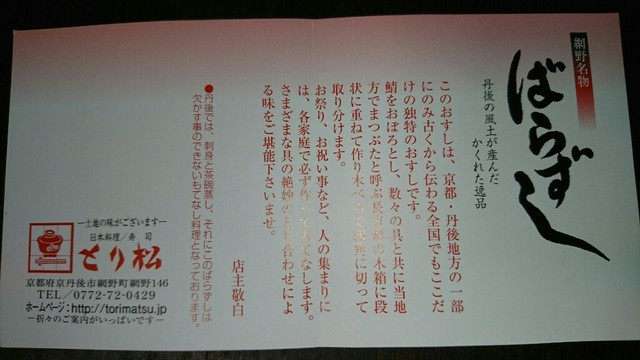 網野名物
ばらずし
丹後の風土が産んだ
かくれた逸品
このおすしは、京都・丹後地方の一部
にのみ古くから伝わる全国でもここだ
けの独特のおすしです。
鯖をおぼろとし、数々の具と共に当地
方でまつぶたと呼ぶ の木箱に段
状に重ねて作り木べ に切って
取り分けます。
お祭り、お祝い事など、人の集まりに
は、各家庭で必ず作 なします。
さまざまな具の絶妙の 合わせによ
る味をご堪能下さいませ。
店主敬白
●丹後では、刺身と茶碗蒸し、それにこのばらずしは
欠かす事のできないもてなし料理となっております。
―土地の味がございます―
日本料理/寿司
とり松
京都府京丹後市網野町網野146
TEL/0772-72-0429
ホームページ:http://torimatsu.jp
―折々のご案内がいっぱいです―